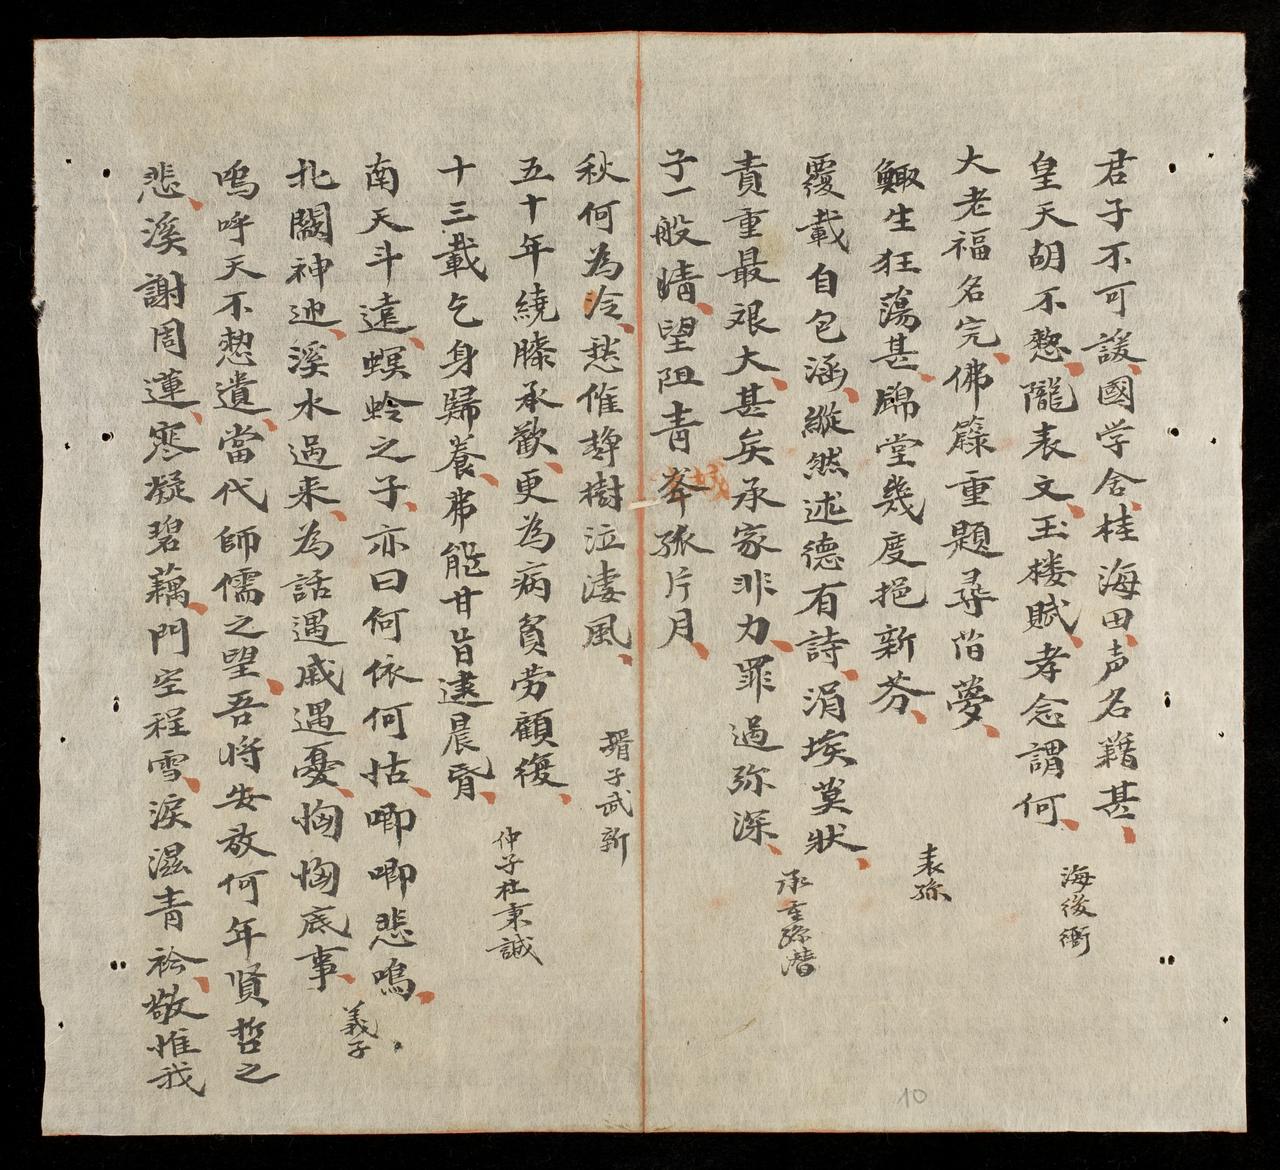 君子不可諼、國学舍、桂海田、声名籍甚、
皇天胡不憖、隴表文、玉楼賦、孝念謂何、
海後衡
大老福名完、佛籙重題尋旹夢、
鯫生狂蕩甚、錦堂幾度挹新芬、
表弥
覆載自包涵、縱然述德有詩、涓埃莫狀、
責重最艰大、甚矣承家非力、罪過弥深、
承重孫潜
子一般情、望阻青峯孤片月、
城
秋何為泠、愁催静樹泣淒風、
婿子武新
五十年繞膝承歡、更為病貧劳顧復、
十三載乞身歸養、弗能甘旨逮晨昏、
仲子杜秉誠
南天斗遠、螟蛉之子、亦曰何依何怙、唧唧悲鳴、
北闕神迯、溪水過来、為話遇戚遇憂、恟恟底事、
義子
嗚呼天不憖遺、當代師儒之望、吾将安放何年賢哲之
悲、溪謝周蓮、寒凝碧藕、門空程雪、淚滋青衿、敬惟我
10